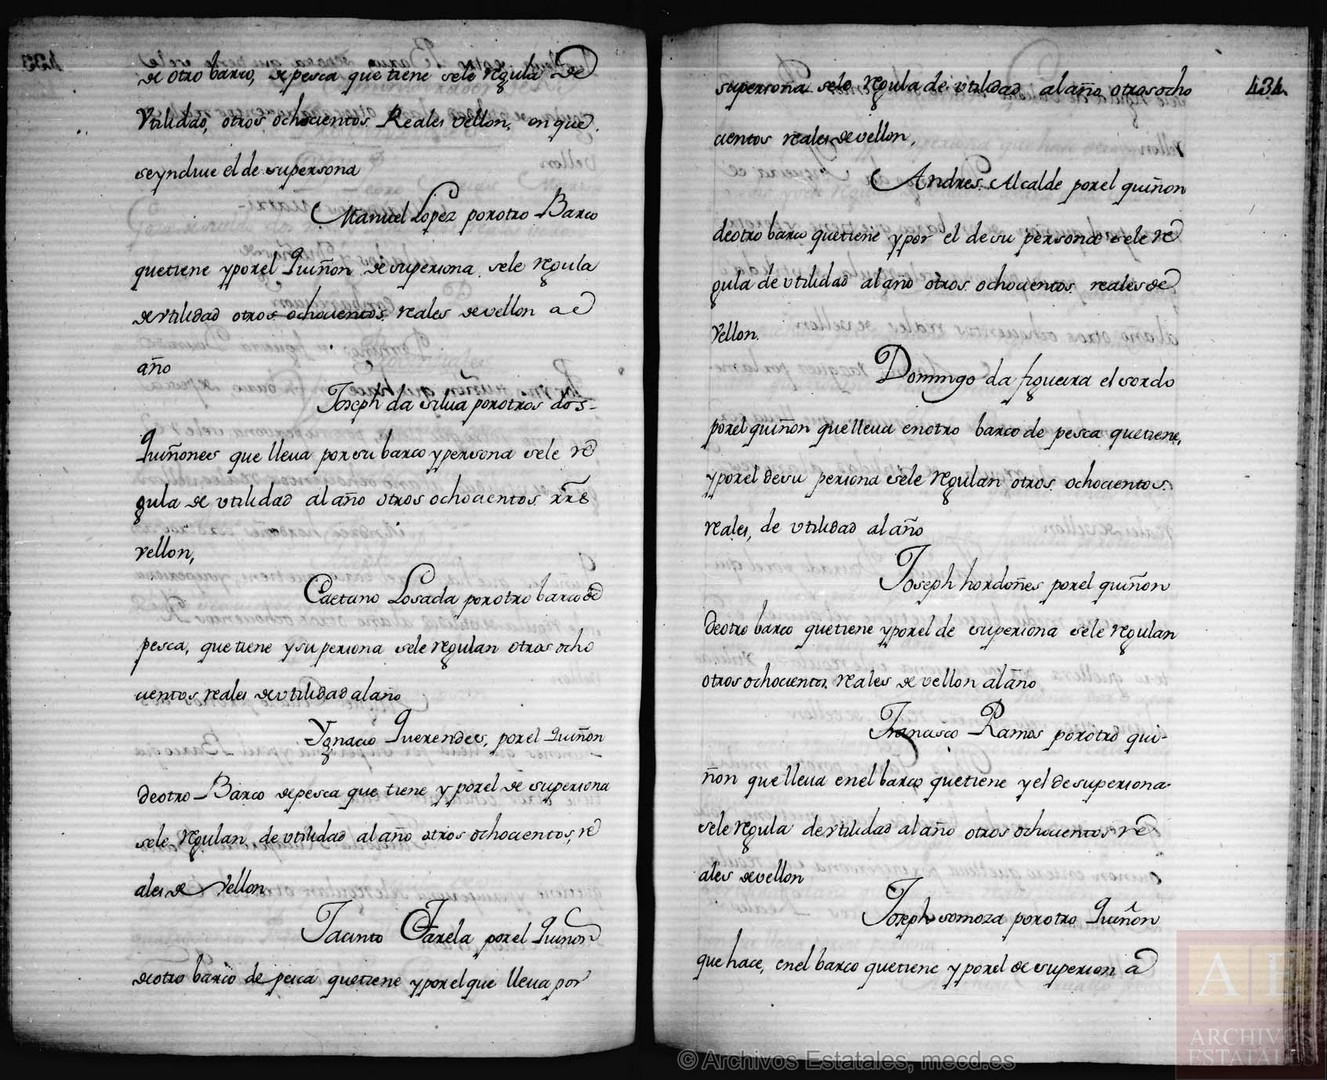 de otro barco, de pesca que tiene sele regula de
Vtilidad, otros ochocientos Reales vellon, en que
seyncluie el de supersona
Manuel Lopez porotro Barco
quetiene yporel Quiñon desupersona sele regula
devtilidad otros ochocientos reales devellon a e
año
Joseph da silua porotros dos-
Quiñones que lleua porsu barco ypersona sele re
gula de vtilidad alaño otros ochocientos rrs
vellon,
Caetano Losada porotro barco de
pesca, quetiene ysupersona sele regulan otros ocho
cientos reales devtilidad alaño
Ygnacio Querendes, porel Quiñon
deotro Barco depesca que tiene y porel de supersona
sele regulan devtilidad alaño otros ochocientos, re
ales de Vellon
Jacinto Varela porel Quiñon
deotro barco de pesca quetiene yporelque lleua por
supersona sele regula de vtilidad alaño otros ocho
cientos reales devellon,
434.
Andres Alcalde porel quiñon
deotro barco quetiene ypor el desu persona sele re
gula de vtilidad alaño otros ochocientos realesde
Vellon.
Domingo da figueira el sordo
porel quiñon quelleua enotro barcode pesca quetiene,
yporel desu persona sele regulan otros ochocientos
reales, de vtilidad alaño
Joseph hordoñes porel quiñon
deotro barco quetiene yporel de supersona sele regulan
otros ochocientos reales de vellon alaño
Francisco Ramos porotro qui-
ñon quelleua enel barco quetiene yel desupersona
sele regula devtilidad alaño otros ochocientos re
ales devellon
Joseph somoza porotro Quiñon
que hace, enel barco quetiene y porel de supersona
© Archivos Estatales, mecd.es
AE
ARCHIVOS
ESTATALES